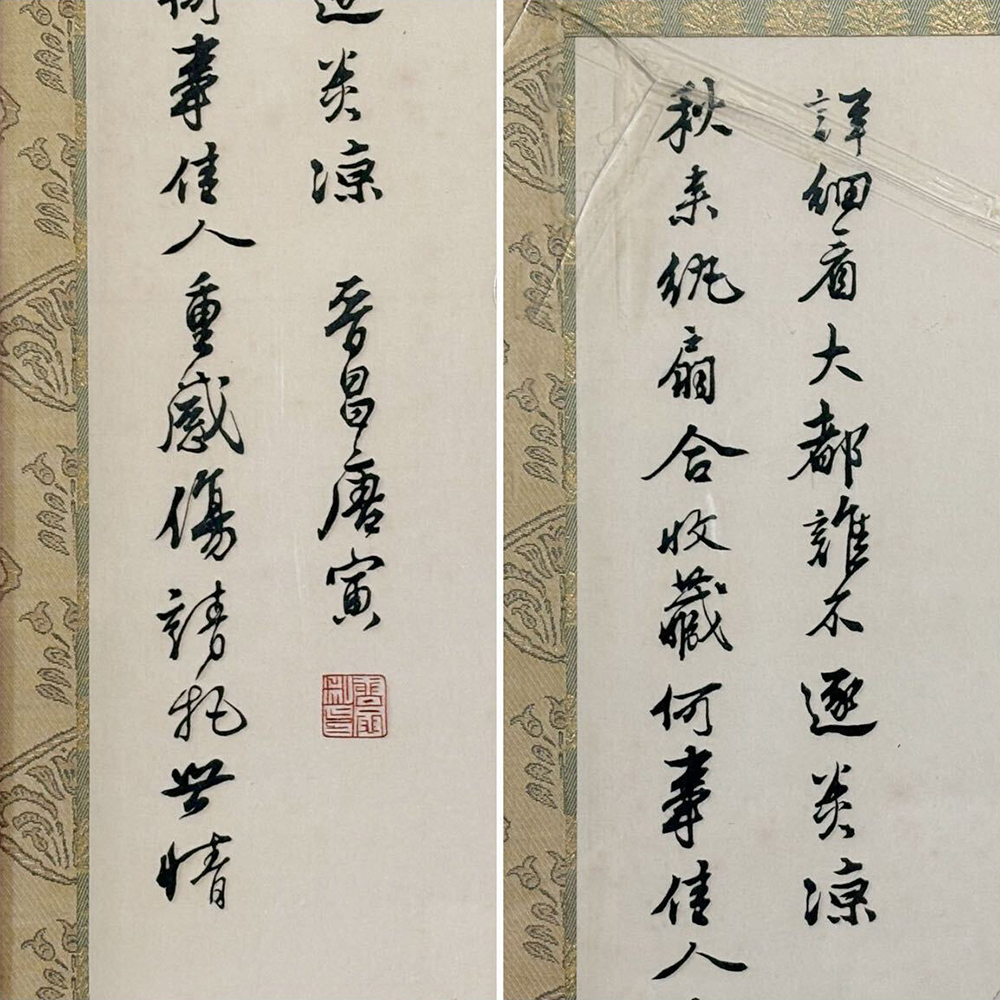 何事佳人重感傷請把世情
逐炎凉 晋昌唐寅
秋来紈扇合收藏何事佳人
詳細看大都誰不逐炎凉